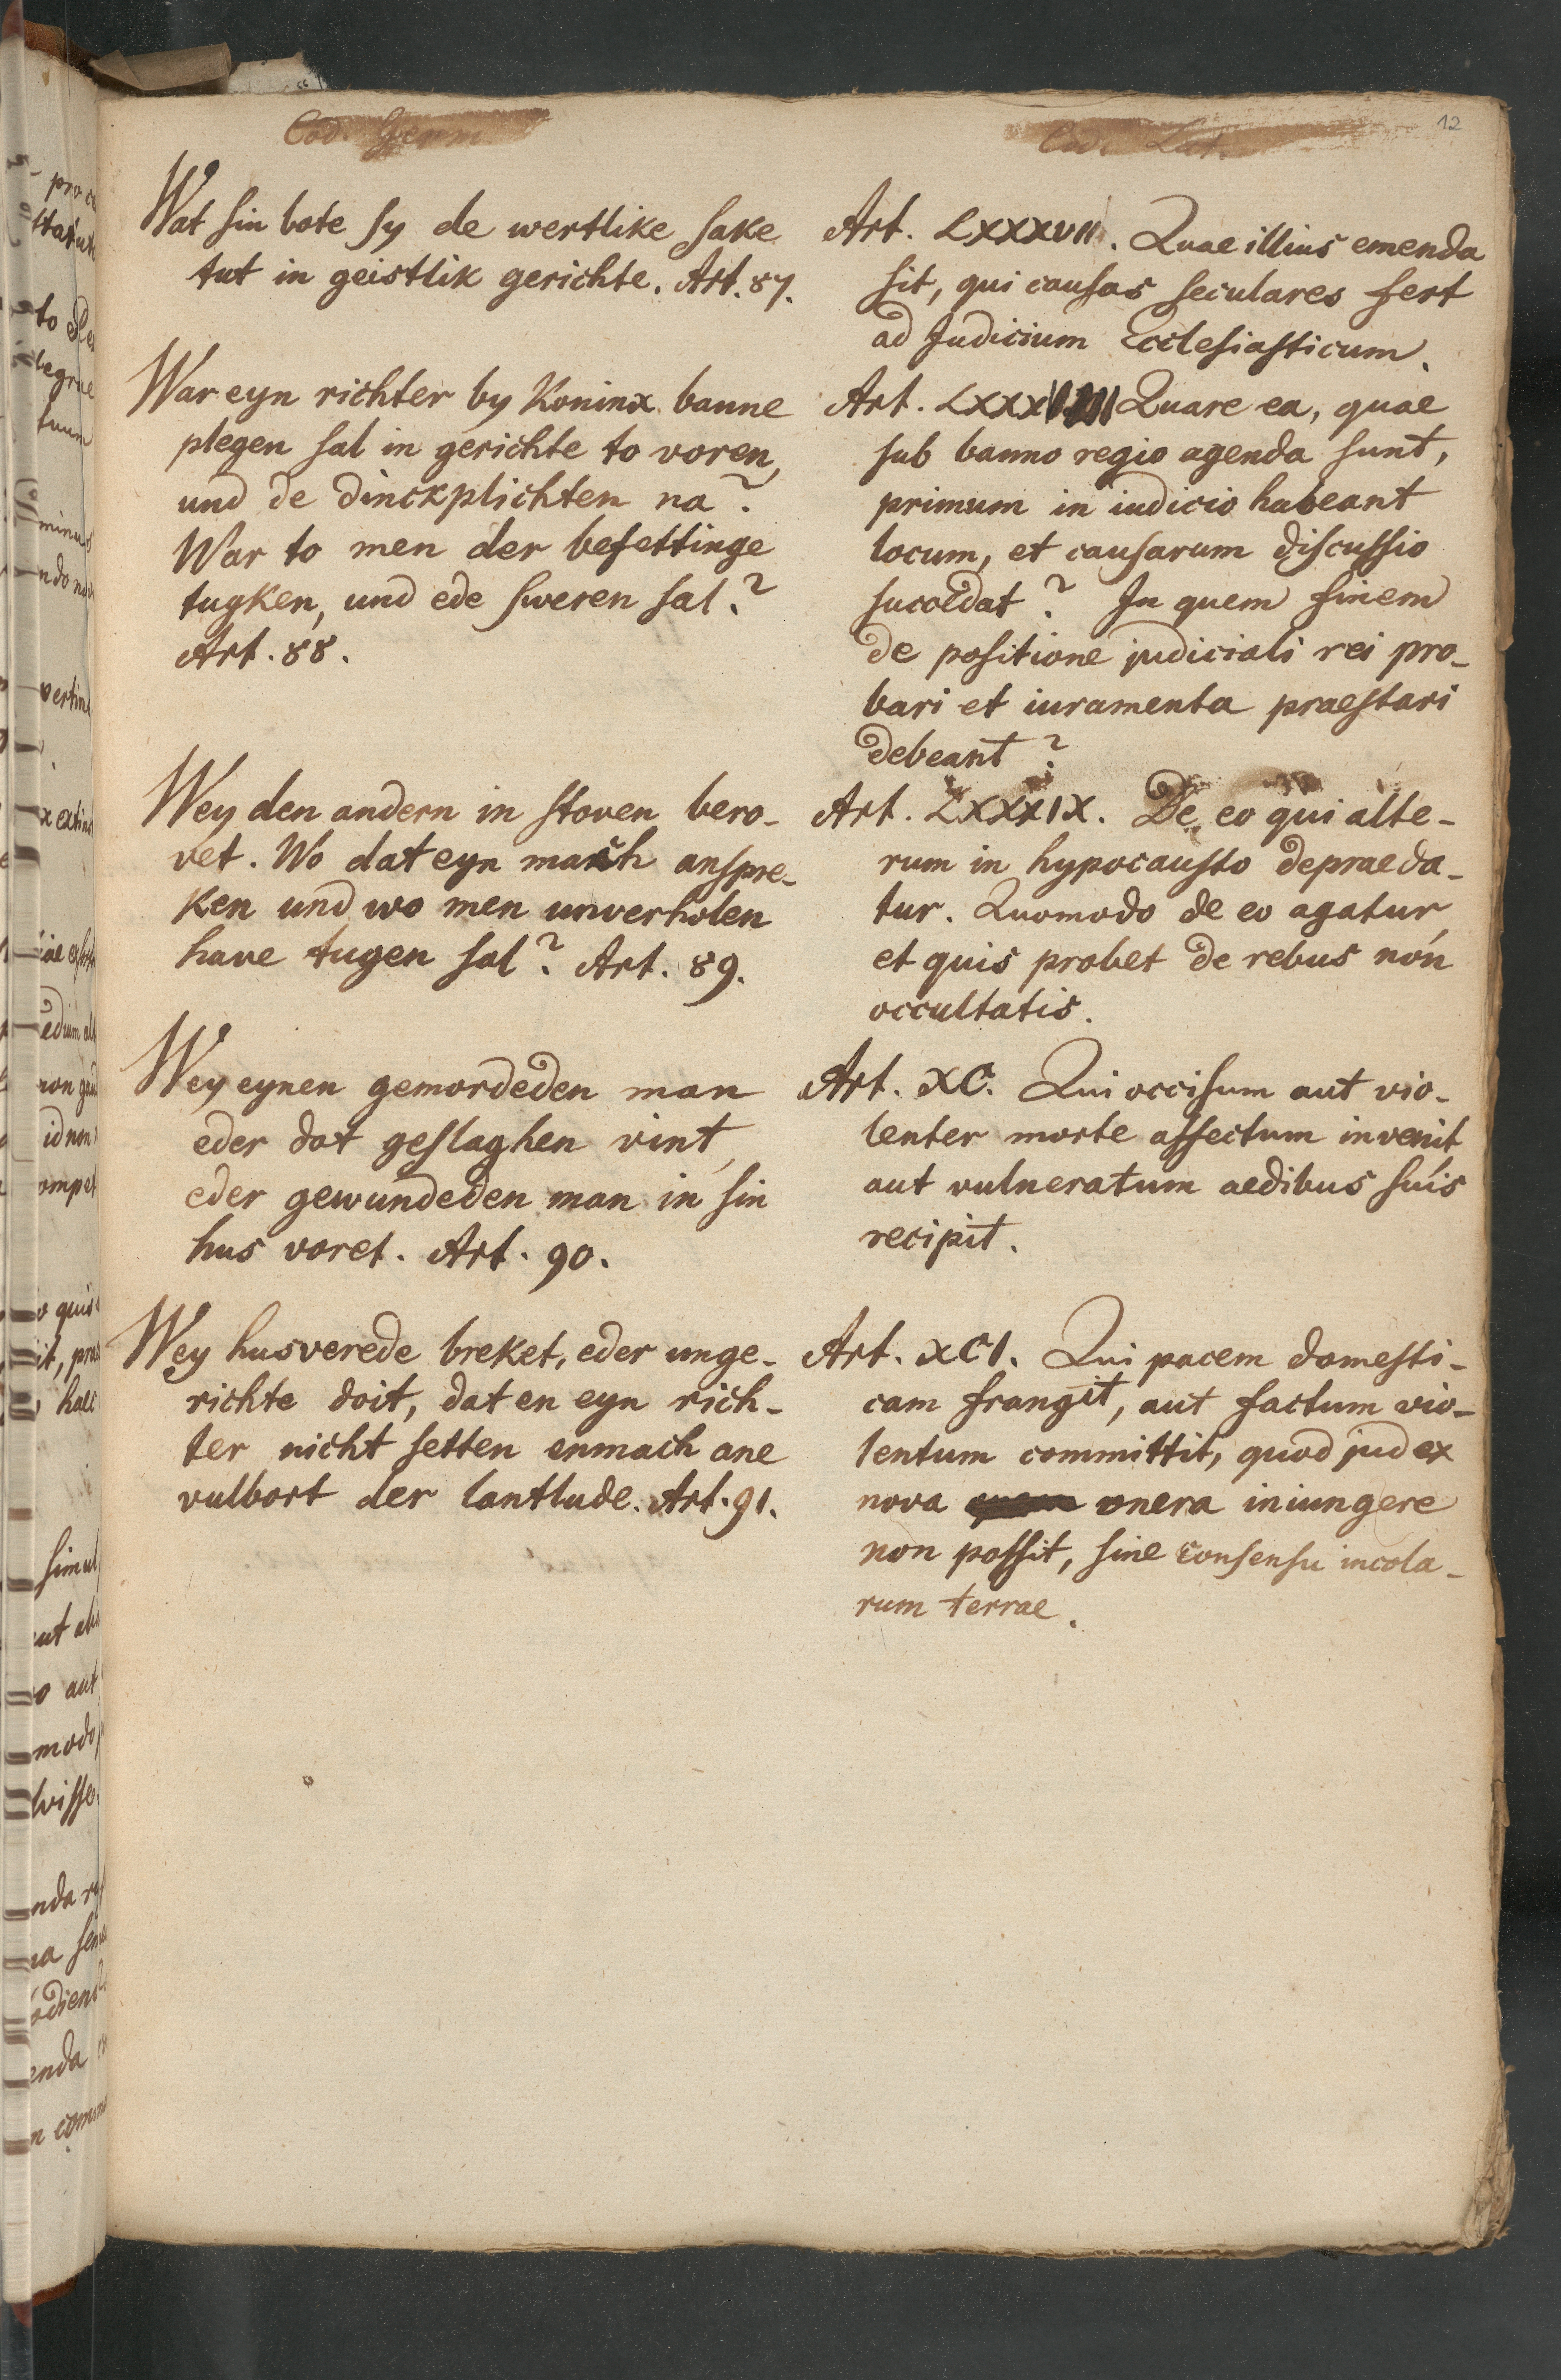 Cod. Germ.
Wat sin bote sy de wertlike sake
tut in geistlik gerichte. Art. 87.
War eyn richter by Koninx banne
plegen sal in gerichte to voren,
und de dinckplichten na?
War to men der besettinge
tugken, und ede sweren sal?
Art. 88.
Wey den andern in stoven bero-
vet. Wo dat eyn mach anspre-
ken und wo men unverholen
have tugen sal? Art. 89.
Wey eynen gemordeden man
eder dot geslaghen vint,
eder gewundeden man in sin
hus voret. Art. 90.
Wey husverede breket, eder unge-
richte doit, dat en eyn rich-
ter nicht setten enmach ane
vulbort der lantlude. Art. 91.
Cod. Lat.
12
Art. LXXXVII. Quae illius emenda
sit, qui causas seculares fert
ad Judicium Ecclesiasticum.
Art. LXXXVIII Quare ea, quae
sub banno regio agenda sunt,
primum in iudicio habeant
locum, et causarum discussio
succedat? In quem finem
de positione judiciali rei pro-
bari et iuramenta praestari
debeant?
Art. LXXXIX. De eo qui alte-
rum in hypocausto depraeda-
tur. Quomodo de eo agatur,
et quis probet de rebus non
occultatis.
Art. XC. Qui occisum aut vio-
lenter morte affectum invenit
aut vulneratum aedibus suis
recipit.
Art. XCI. Qui pacem domesti-
cam frangit, aut factum vio-
lentum committit, quod judex
nova onera iniungere
non possit, sine consensu incola-
rum terrae.